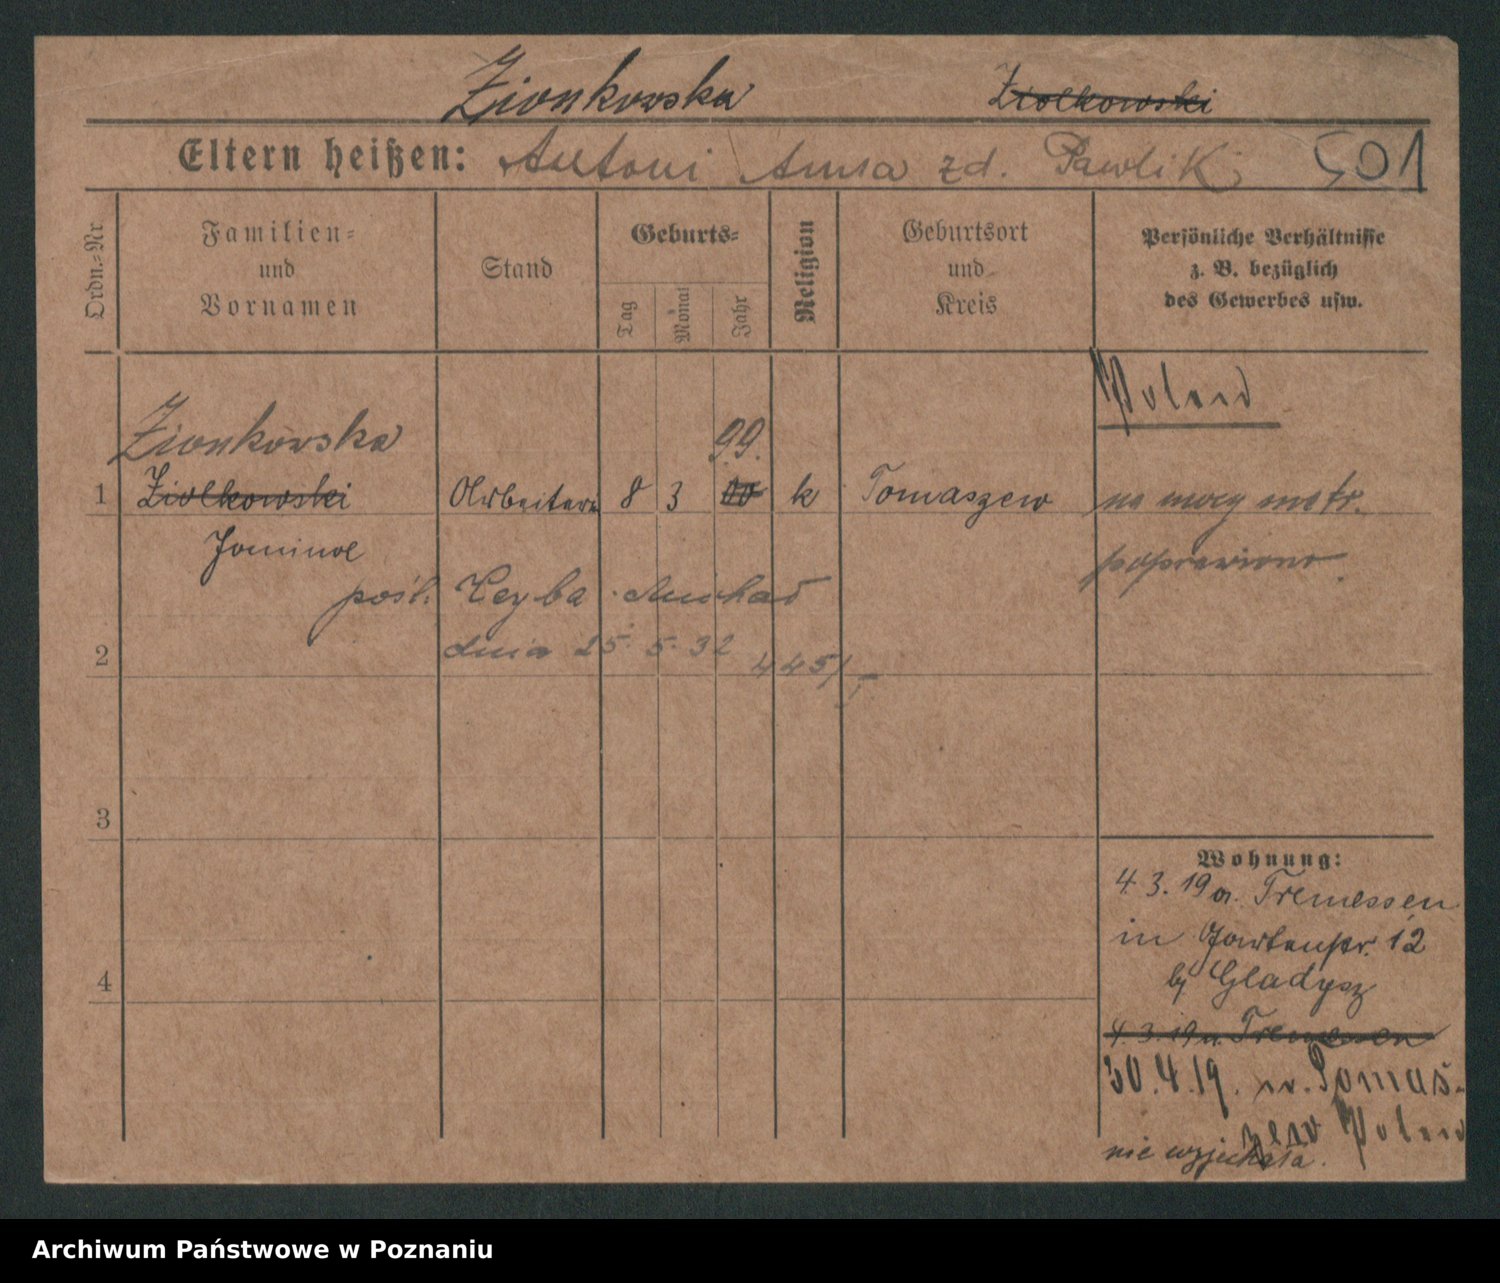 Zionkowska Ziolkowski
Eltern heißen: Antoni Anna zd. Pawlik 501
Ordn.-Nr
Familien-
und
Vornamen
Stand
Geburts-
Tag
Monat
Jahr
Religion
Geburtsort
und
Kreis
Persönliche Verhältnisse
z. B. bezüglich
des Gewerbes usw.
Poland
Zionkowska 99.
1 Ziolkowski Arbeiterin 8 3 00 k Tomaszew na mocy metr.
poprawiono.
pośl. Ceyba Michał
2 dnia 25. 5. 32 445/I
3
Wohnung:
4.3.19 v. Tremessen
in Gartenstr. 12
bj Gladysz
4
4.3.19 v. Tremessen
30.4.19. n. Tomas-
zew Poland
nie wyjechała.